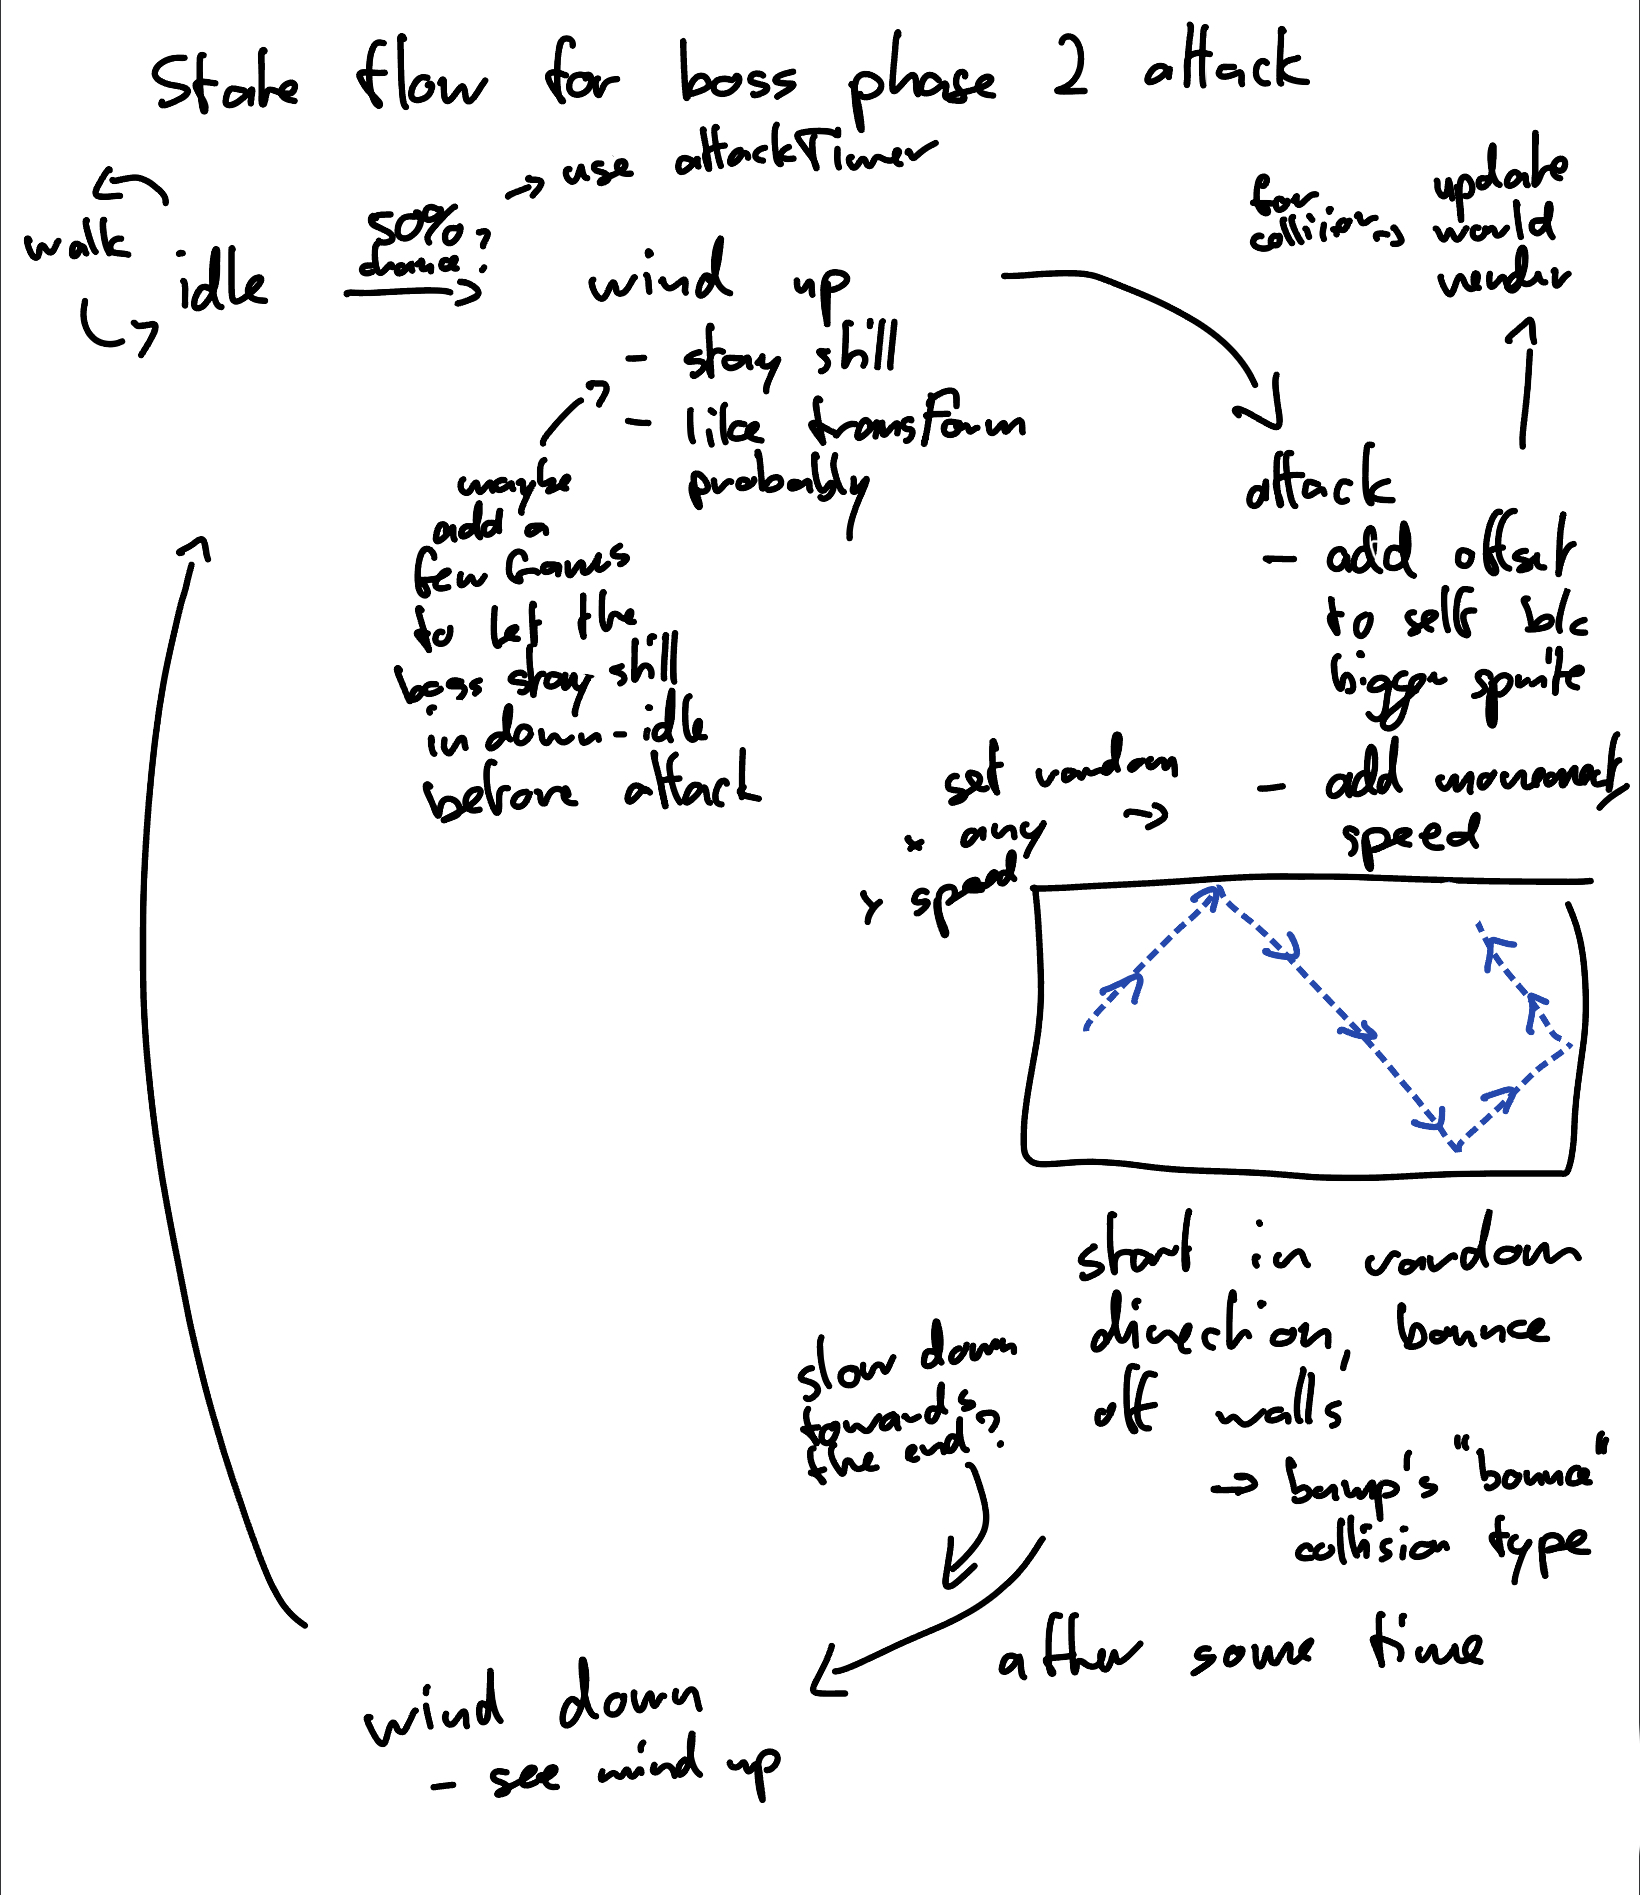 State flow for boss phase 2 attack
→ use attackTimer
walk
idle
50%
chance?
wind up
- stay still
- like transform
probably
maybe
add a
few frames
to let the
boss stay still
in down-idle
before attack
for
collision →
update
world
render
attack
- add offset
to self b/c
bigger sprite
- add movement
speed
set random →
x any
y speed
start in random
direction, bounce
off walls
→ bump's "bounce"
collision type
slow down
towards
the end?
after some time
wind down
- see wind up